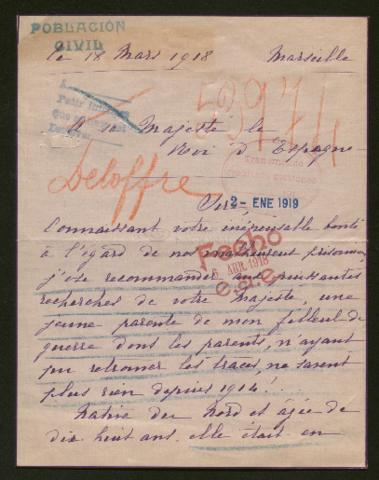 POBLACIÓN
CIVIL
le 18 Mars 1918 Marseille
A sa Majesté le
Roi d'Espagne
5974
Deloffre
Sire
2- ENE 1919
Connaissant votre inépuisable bonté
à l'égard de nos malheureux prisonniers
Fecho
6 ABR. 1918
j'ose recommander aux puissantes
recherches de votre Majesté, une
jeune parente de mon filleul de
guerre dont les parents, n'ayant
pu retrouver les traces, ne savent
plus rien depuis 1914!
Native du Nord et âgée de
dix huit ans, elle était en